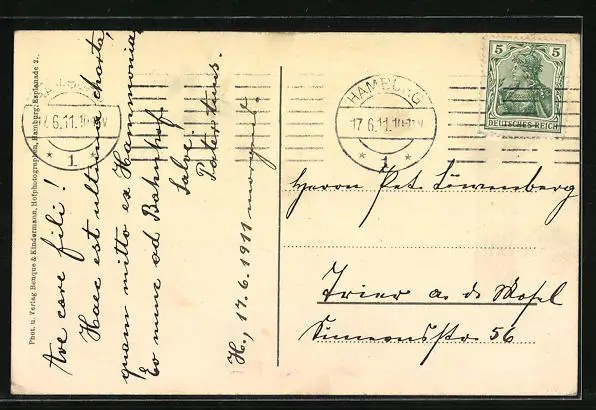 Phot. u. Verlag Benque & Kindermann, Hofphotographen, Hamburg, Esplanade 2.
Ave care fili!
Haec est ultima charta,
quam mitto ex Hammonia.
Eo nunc ad Bahnhof.
Salve!
Pater tuus.
H., 17.6.1911
HAMBURG
17.6.11.10
* 1 *
HAMBURG
17.6.11.10
* 1 *
5 5
DEUTSCHES REICH
Herrn Pet. Löwenberg
Trier a. d. Mosel
Simeonstr. 56